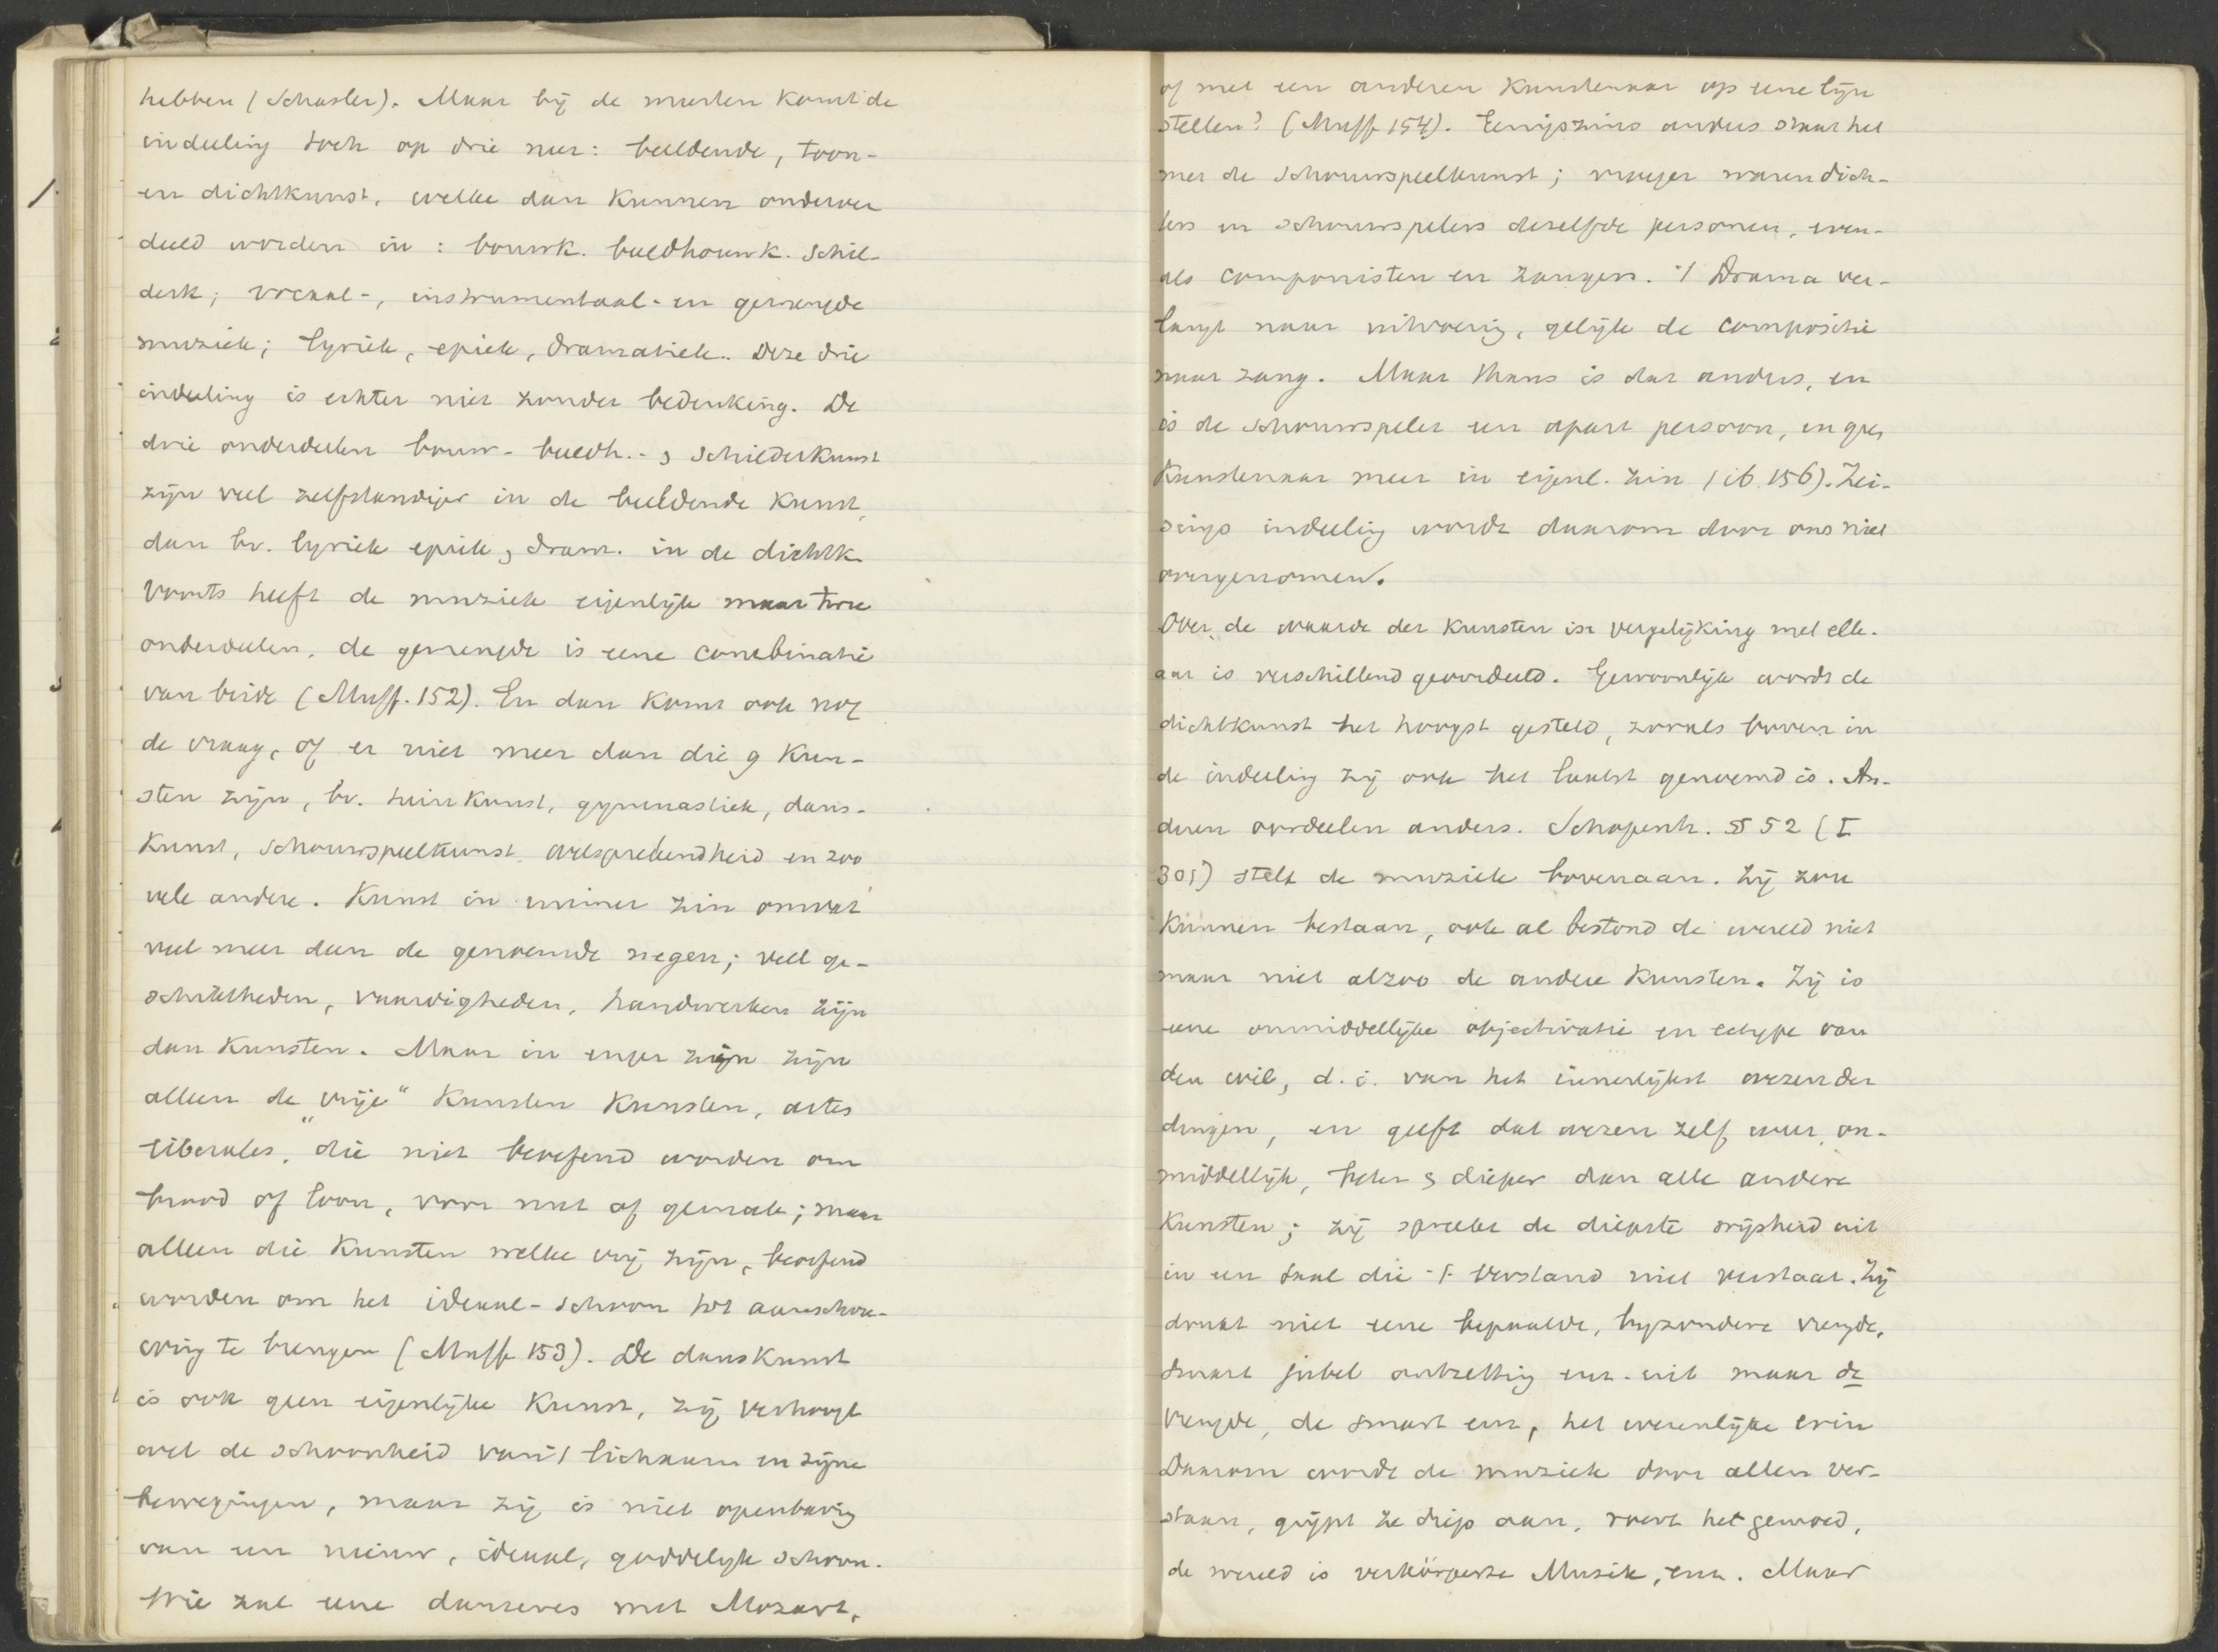 hebben (Schasler). Maar bij de meesten komt de
indeeling toch op drie neer: beeldende, toon-
en dichtkunst, welke dan kunnen onderver
deeld worden in : bouwk. beeldhouwk. schil-
derk; vocaal-, instrumentaal- en gemengde
muziek; lyriek, epiek, dramatiek. Deze drie
indeeling is echter niet zonder bedenking. De
drie onderdeelen bouw- beeldh.- & schilderkunst
zijn veel zelfstandiger in de beeldende kunst,
dan bv. lyriek epiek & dram. in de dichtk.
Voorts heeft de muziek eigenlijk maar twee
onderdeelen, de gemengde is eene combinatie
van beide (Muff. 152). En dan komt ook nog
de vraag, of er niet meer dan die 9 Kun-
sten zijn, bv. tuinkunst, gymnastiek, dans-
kunst, schouwspeelkunst, welsprekendheid en zoo
vele andere. Kunst in ruimer zin omvat
veel meer dan de genoemde negen; veel ge-
schiktheden, vaardigheden, handwerken zijn
dan Kunsten. Maar in enger zijn zijn
alleen de „vrije“ Kunsten Kunsten, artes
liberales, die niet beoefend worden om
brood of loon, voor nut of gemak; maar
alleen die Kunsten welke vrij zijn, beoefend
worden om het ideaal-schoon tot aanschou-
wing te brengen (Muff 153). De danskunst
is ook geen eigenlijke Kunst, zij verhoogt
wel de schoonheid van 't lichaam en zijne
bewegingen, maar zij is niet openbaring
van een nieuw, ideaal, goddelijk schoon.
Wie zal eene danseres met Mozart,
of met een anderen Kunstenaar op eene lijn
stellen? (Muff 154). Eenigszins anders staat het
met de schouwspeelkunst; vroeger waren dich-
ters en schouwspelers dezelfde personen, even-
als componisten en zangers. 't Drama ver-
langt naar uitvoering, gelijk de compositie
naar zang. Maar thans is dat anders, en
is de schouwspeler een apart persoon, en geen
Kunstenaar meer in eigenl. zin (ib. 156). Zei-
sings indeeling wordt daarom door ons niet
overgenomen.
Over de waarde der Kunsten in vergelijking met elk-
aar is verschillend geoordeeld. Gewoonlijk wordt de
dichtkunst het hoogst gesteld, zooals boven in
de indeeling zij ook het laatst genoemd is. An-
deren oordeelen anders. Schopenh. § 52 (I
305) stelt de muziek bovenaan. Zij zou
kunnen bestaan, ook al bestond de wereld niet
maar niet alzoo de andere Kunsten. Zij is
eene onmiddellijke objectivatie en ectype van
den wil, d.i. van het innerlijkst wezen der
dingen, en geeft dat wezen zelf weer, on-
middellijk, beter & dieper dan alle andere
Kunsten; zij spreekt de diepste wijsheid uit
in een taal die 't verstand niet verstaat. Zij
drukt niet eene bepaalde, byzondere vreugde,
smart jubel ontzetting enz. uit maar de
vreugde, de smart enz, het wezenlijke erin
Daarom wordt de muziek door allen ver-
staan, grijpt ze diep aan, roert het gemoed,
de wereld is verkörperte Musik, enz. Maar